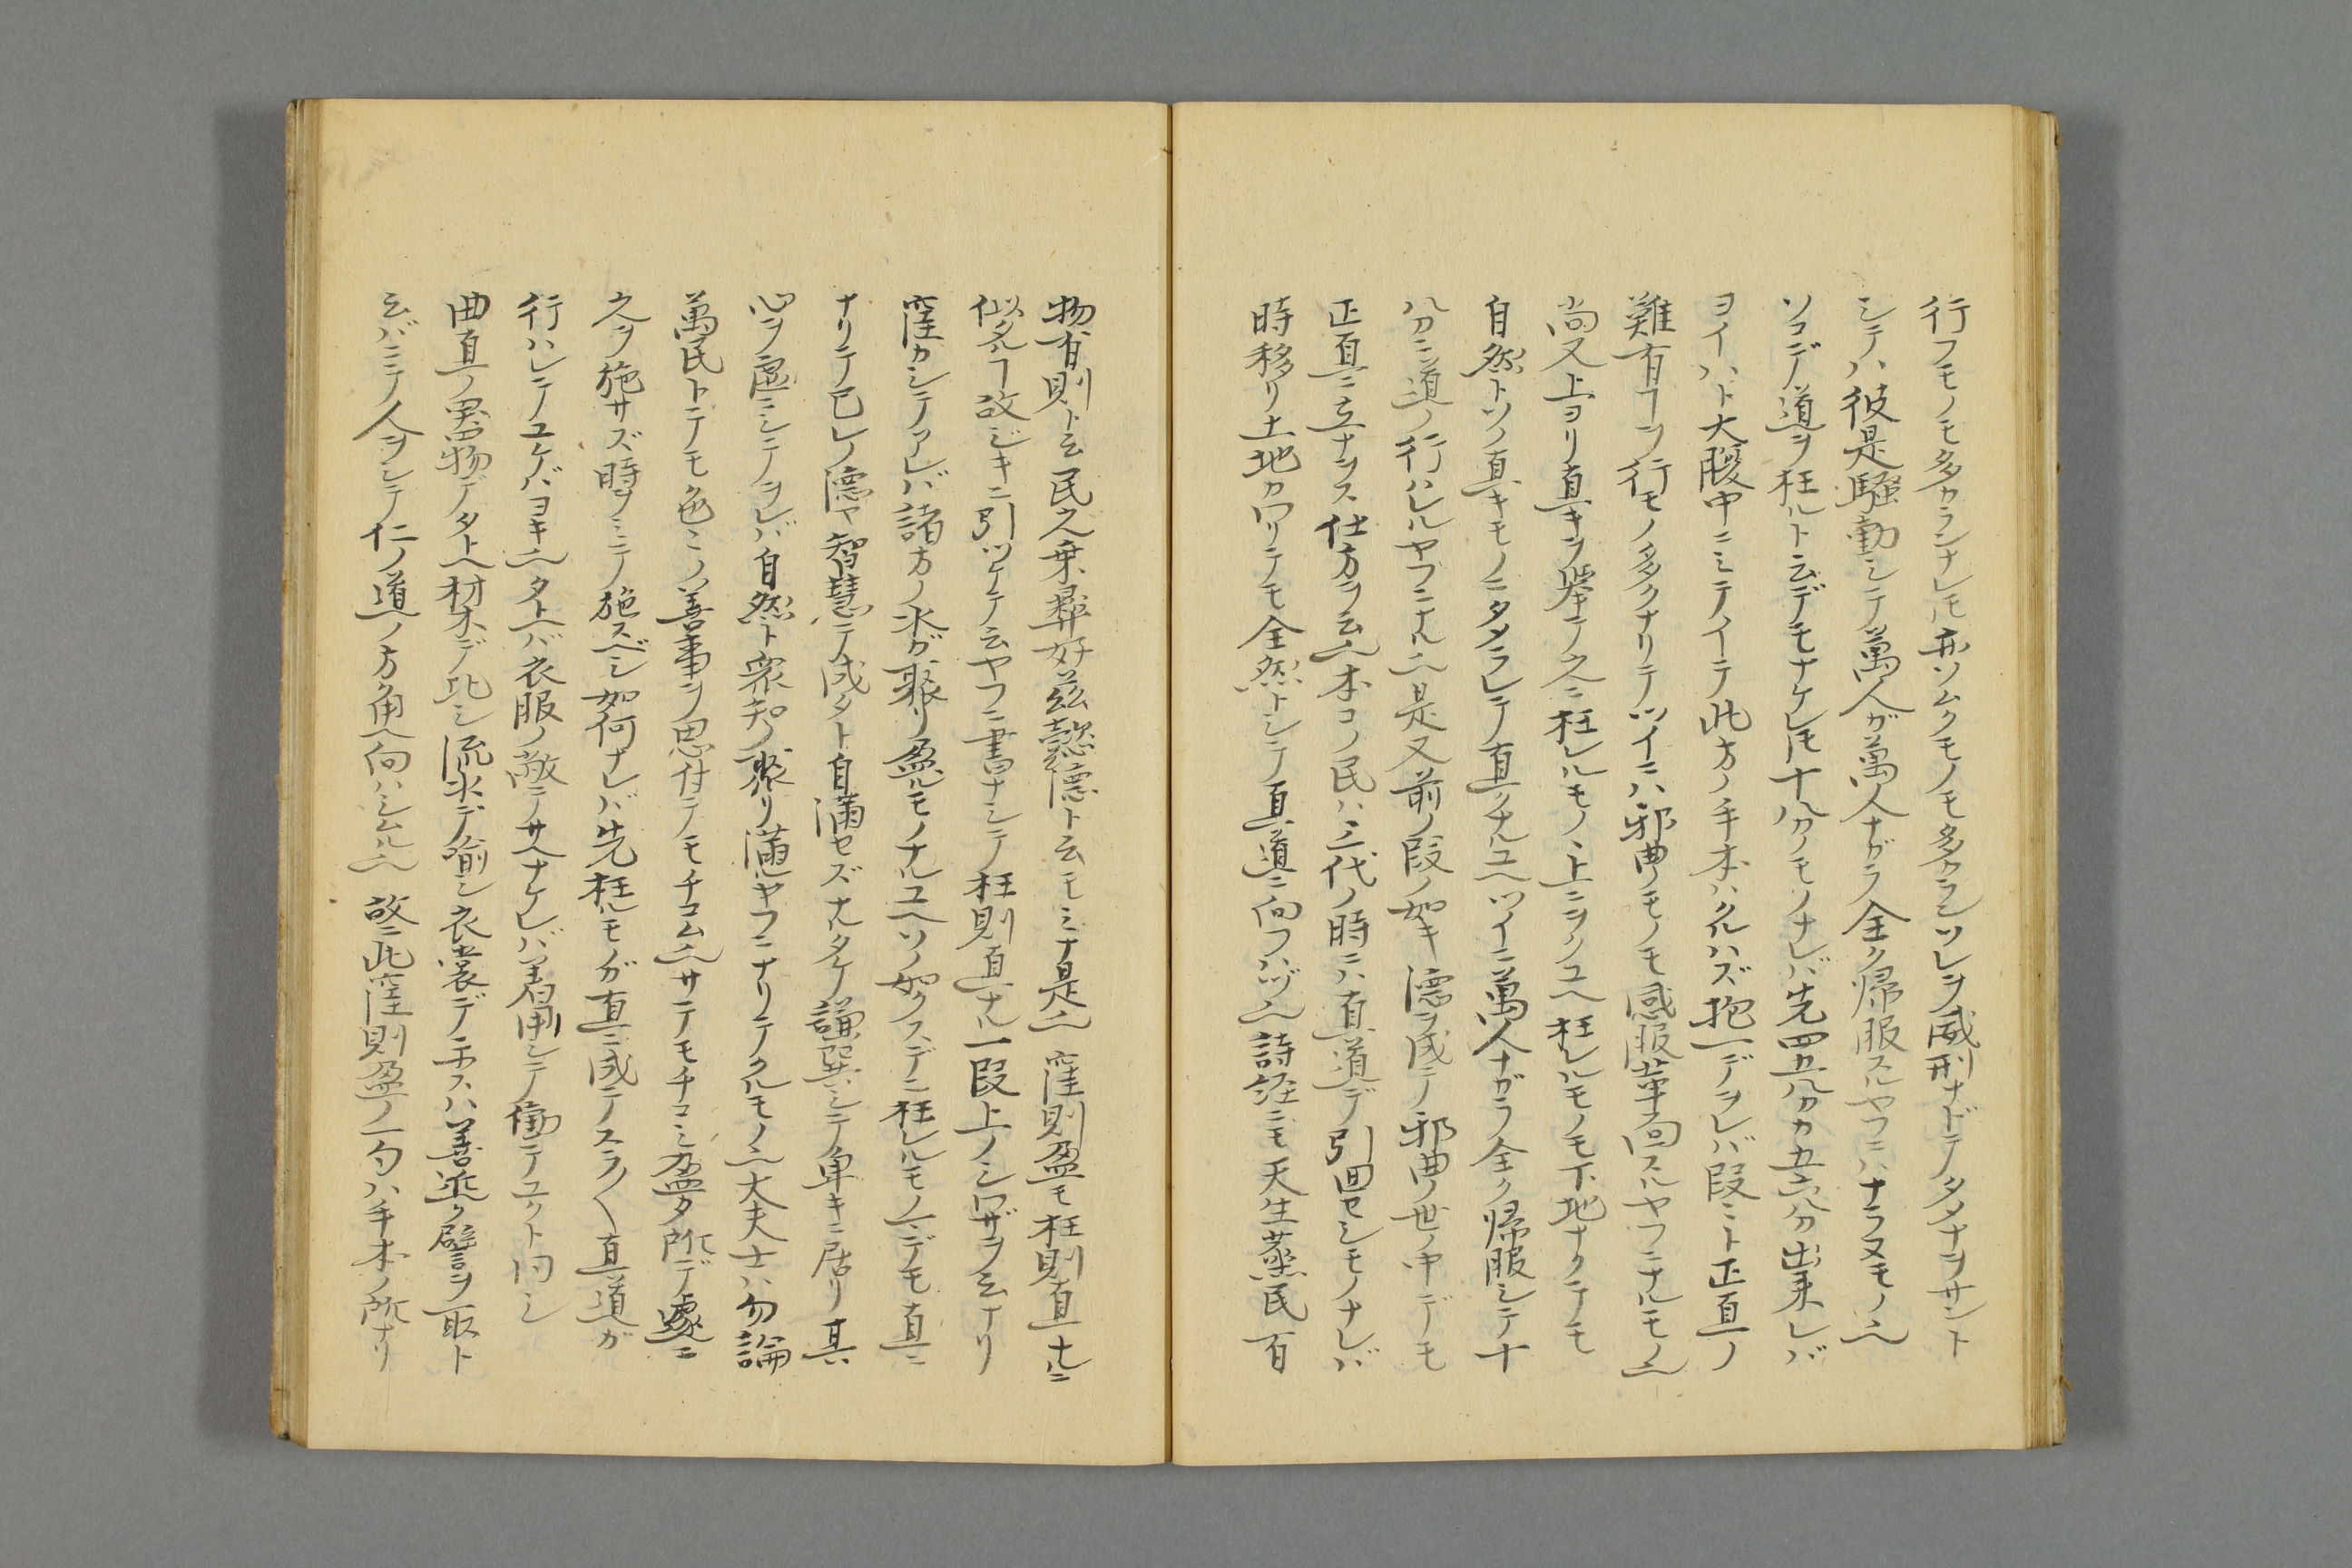 行フモノモ多カランナレ𪜈亦ソムクモノモ多カランソレヲ威刑ナドテタヲサント
シテハ彼是騒動シテ萬人ガ萬人ナガラ全ク帰服スルヤフニハナラヌモノ𠆢
ソコデ道ヲ枉ルト云デモナケレ𪜈十分ノモノナレバ先四五分カ五六分出来レバ
ヨイハト大腹中ニシテイテ此方ノ手本ハクルハズ抱一デヲレバ段ミト正直ノ
難有ヿヲ行モノ多クナリテツイニハ邪曲ノモノモ感服革向スルヤフニナルモノ𠆢
尚又上ヨリ直キヲ挙テ之ニ枉レルモノヽ上ニヲクユヘ枉レルモノモ下地ナクテモ
自然トソノ直キモノニタメラレテ直クナルユヘツイニ萬人ナガラ全ク帰服シテ十
分ニ道ノ行ハレルヤフニナル𠆢是又前ノ段ノ如キ德ヲ成テ邪曲ノ世ノ中デモ
正直ニ立ナヲス仕方ヲ云𠆢本コノ民ハ三代ノ時ニハ直道デ引回セシモノナレバ
時移リ土地カワリテモ全然トシテ直道ニ向フハヅ𠆢詩経ニモ天生蒸民有
物有則ト云民之秉彝好茲懿德ト云モミナ是𠆢窪則盈モ枉則直ナルニ
似タルヿ故ジキニ引ツケテ云ヤフニ書ナシテ枉則直ナル一段上ノシワザヲ云ナリ
窪カシテアレバ諸方ノ水ガ聚リ盈ルモノナルユヘソノ如クスデニ枉レルモノ𠆢デモ直ニ
ナリテ己レノ德ヤ智慧ニテ成タト自滿セズナルタケ謙巽シテ卑キニ居リ其
心ヲ虚ミシテヲレバ自然ト衆知ノ聚リ滿ルヤフニナリテクルモノ𠆢大夫士ハ勿論
萬民トテモ色ミノ善事ヲ思付テモチコム𠆢サテモチコミ盈タ所デ遽ニ
之ヲ施サズ時ヲミテ施スベシ如何ナレバ先枉ルモノガ直ニ成テスラ〱直道ガ
行ハレテユケバヨキ𠆢タトヘバ衣服ノ敝テサヘナケレバ着用シテ働テユクト同シ
曲直ノ異物デタトヘ材木デ比シ流水デ喩シ衣裳デ云ハ善近ク譬ヲ取ト
云バニテ人ヲシテ仁ノ道ノ方角ヘ向ハシムル𠆢故ニ此窪則盈ノ一句ハ手本ノ所ナリ